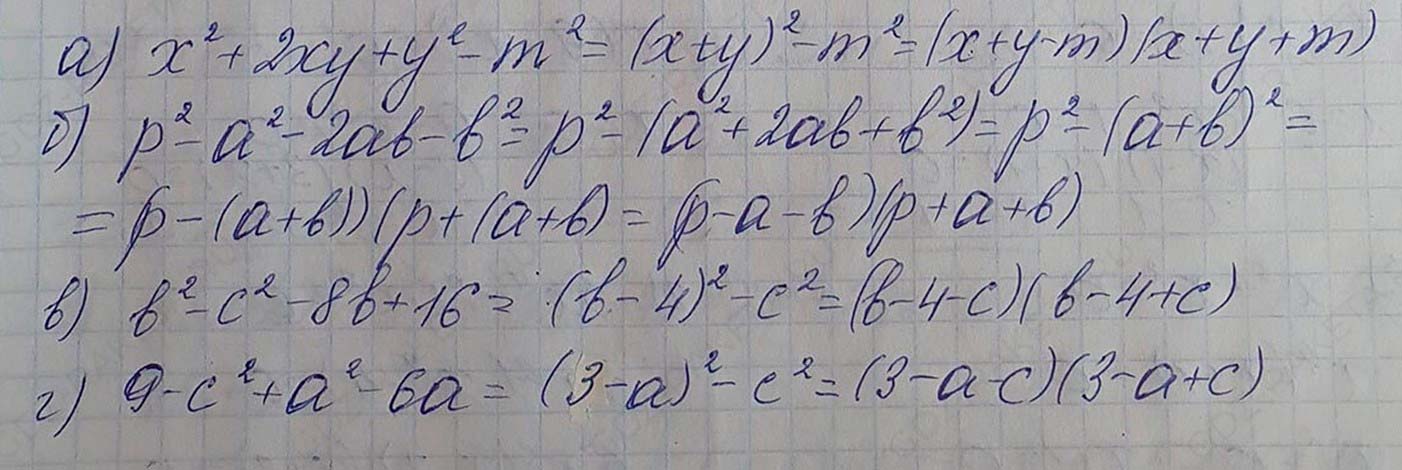 а) x² + 2xy + y² - m² = (x+y)² - m² = (x+y-m)(x+y+m)
б) p² - a² - 2ab - b² = p² - (a² + 2ab + b²) = p² - (a+b)² =
= (p - (a+b))(p + (a+b) = (p-a-b)(p+a+b)
в) b² - c² - 8b + 16 = (b-4)² - c² = (b-4-c)(b-4+c)
г) 9 - c² + a² - 6a = (3-a)² - c² = (3-a-c)(3-a+c)